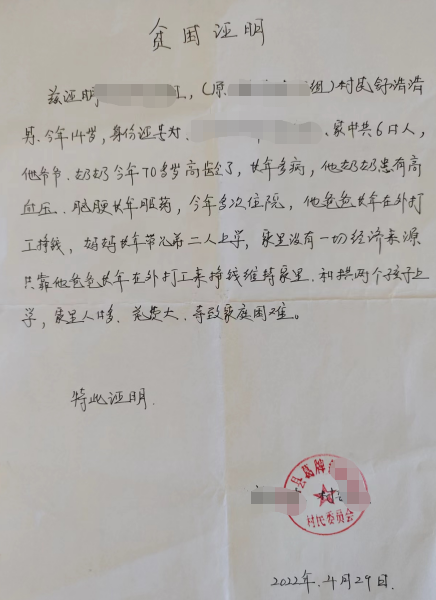 贫困证明
兹证明 组,(原 组)村民舒浩浩
男.今年14岁,身份证号为. 家中共6口人,
他爷爷.奶奶今年70多岁高龄了,长年多病,他奶奶患有高
血压.脑梗长年服药,今年多次住院,他爸爸长年在外打
工挣钱,妈妈长年带兄弟二人上学,家里没有一切经济来源
只靠他爸爸长年在外打工来挣钱维持家里.和供两个孩子上
学,家里人多.花费大.导致家庭困难。
特此证明.
县葛牌
村
村民委员会
2022年.4月29日.